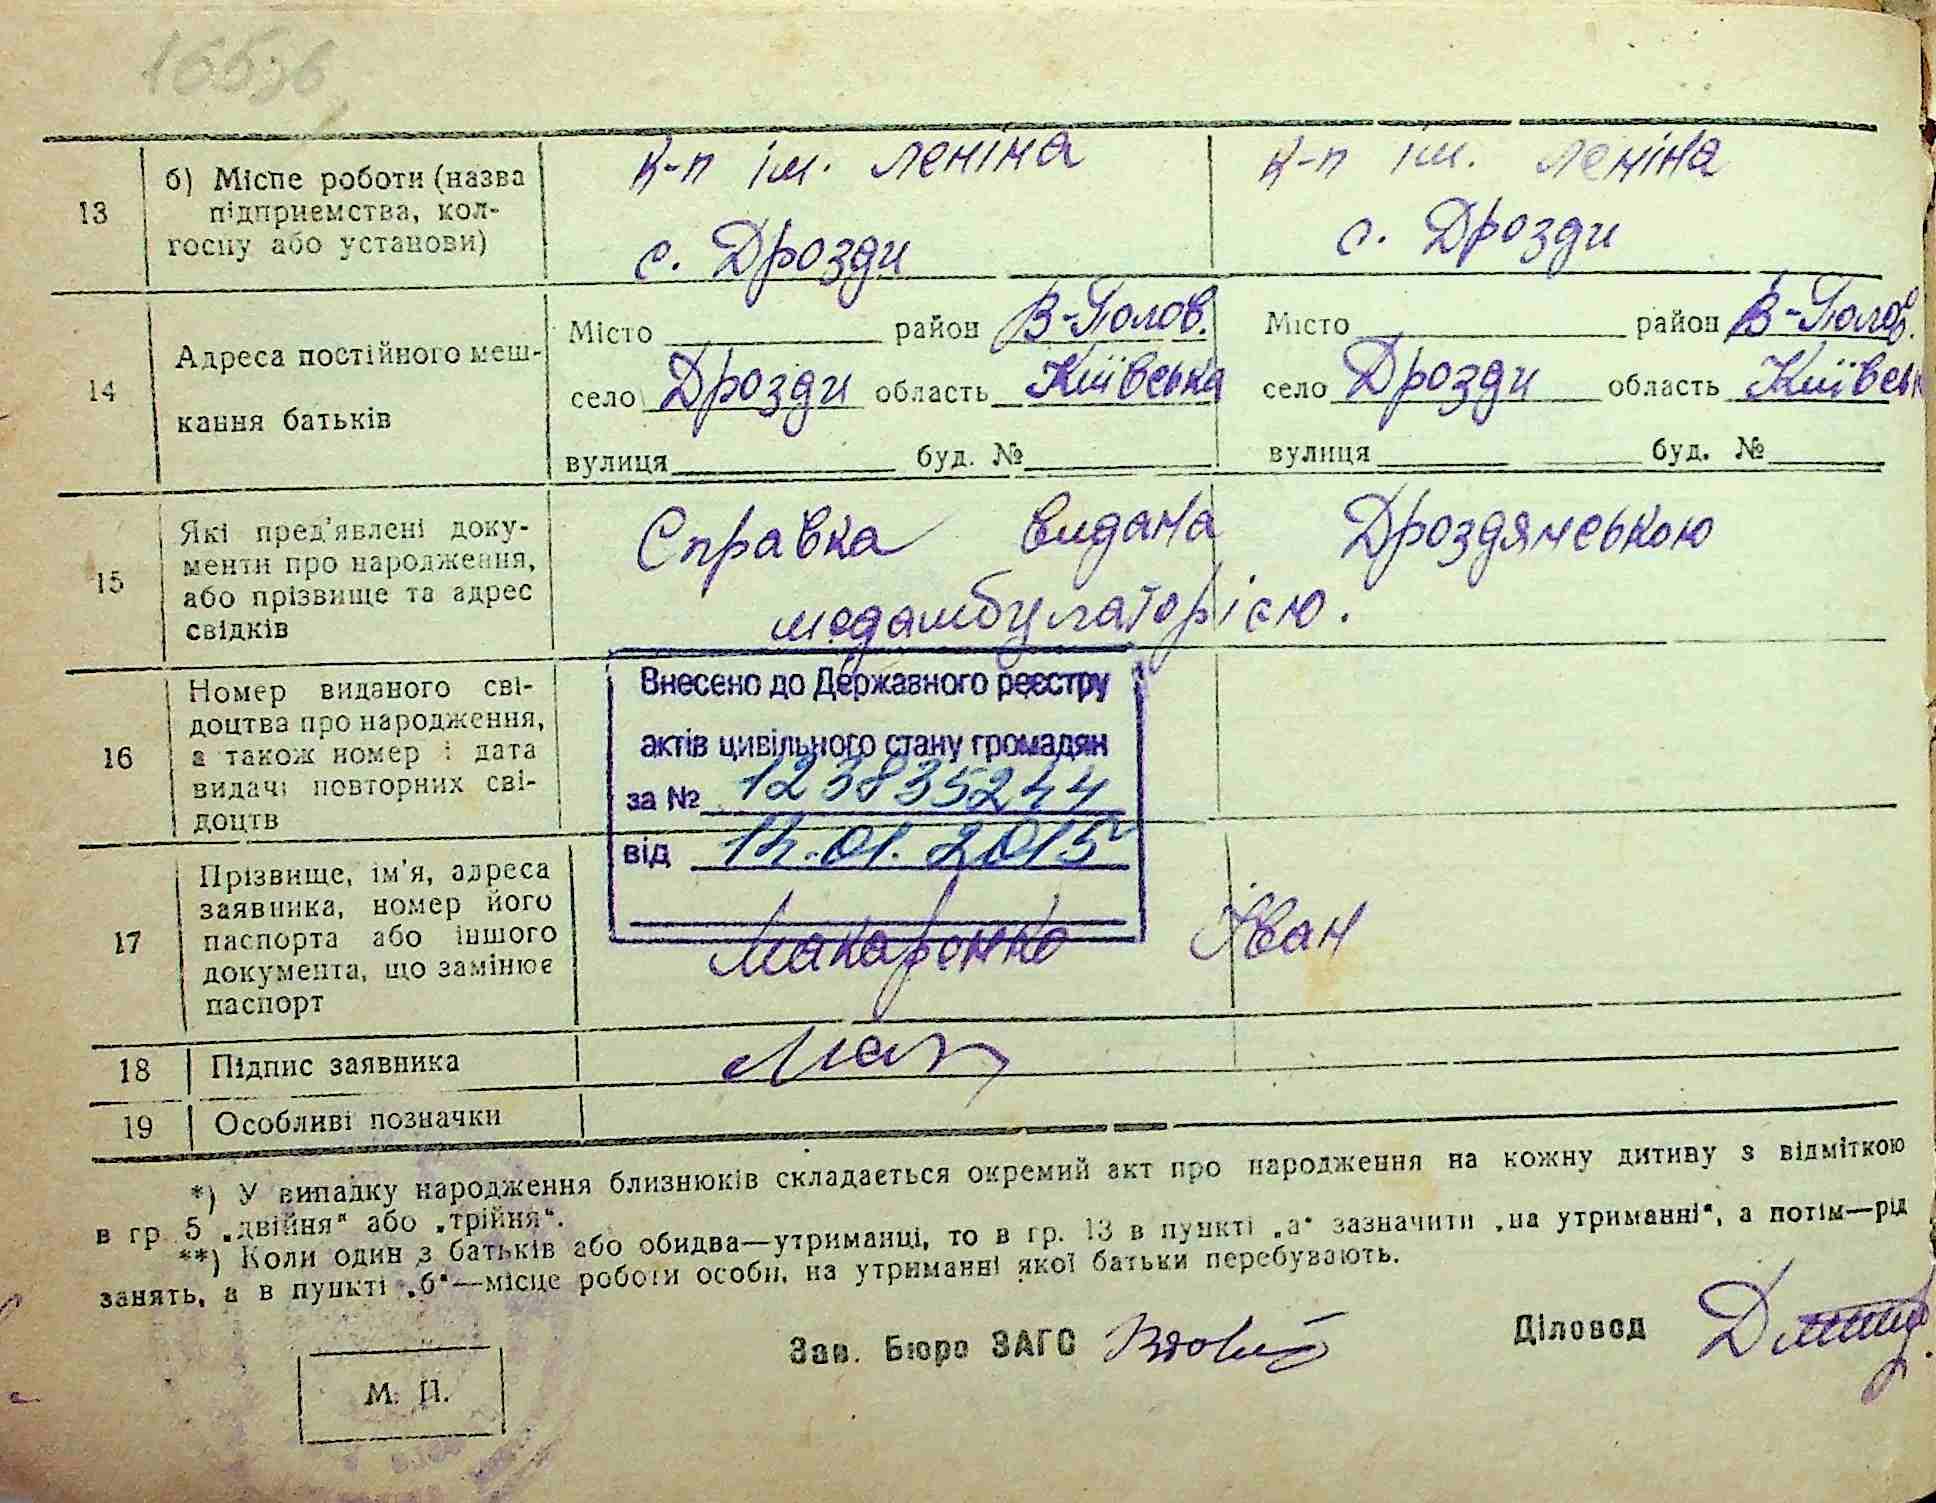 13
б) Місце роботи (назва підприємства, колгоспу або установи)
к-п ім. Леніна
с. Дрозди
к-п ім. Леніна
с. Дрозди
14
Адреса постійного мешкання батьків
Місто район В-Полов.
село Дрозди область Київська
вулиця буд. №
Місто район В-Полов.
село Дрозди область Київськ
вулиця буд. №
15
Які пред'явлені документи про народження, або прізвище та адрес свідків
Справка видана Дроздянською
медамбулаторією.
16
Номер виданого свідоцтва про народження, а також номер і дата видачі повторних свідоцтв
Внесено до Державного реєстру
актів цивільного стану громадян
за № 123835244
від 12.01.2015
17
Прізвище, ім'я, адреса заявника, номер його паспорта або іншого документа, що замінює паспорт
Макаренко Іван
18
Підпис заявника
Мак
19
Особливі позначки
*) У випадку народження близнюків складається окремий акт про народження на кожну дитину з відміткою
в гр 5 „двійня“ або „трійня“.
**) Коли один з батьків або обидва—утриманці, то в гр. 13 в пункті „а“ зазначити „на утриманні“, а потім—рід
занять, а в пункті „б“—місце роботи особи, на утриманні якої батьки перебувають.
Зав. Бюро ЗАГС
Діловод
М. П.